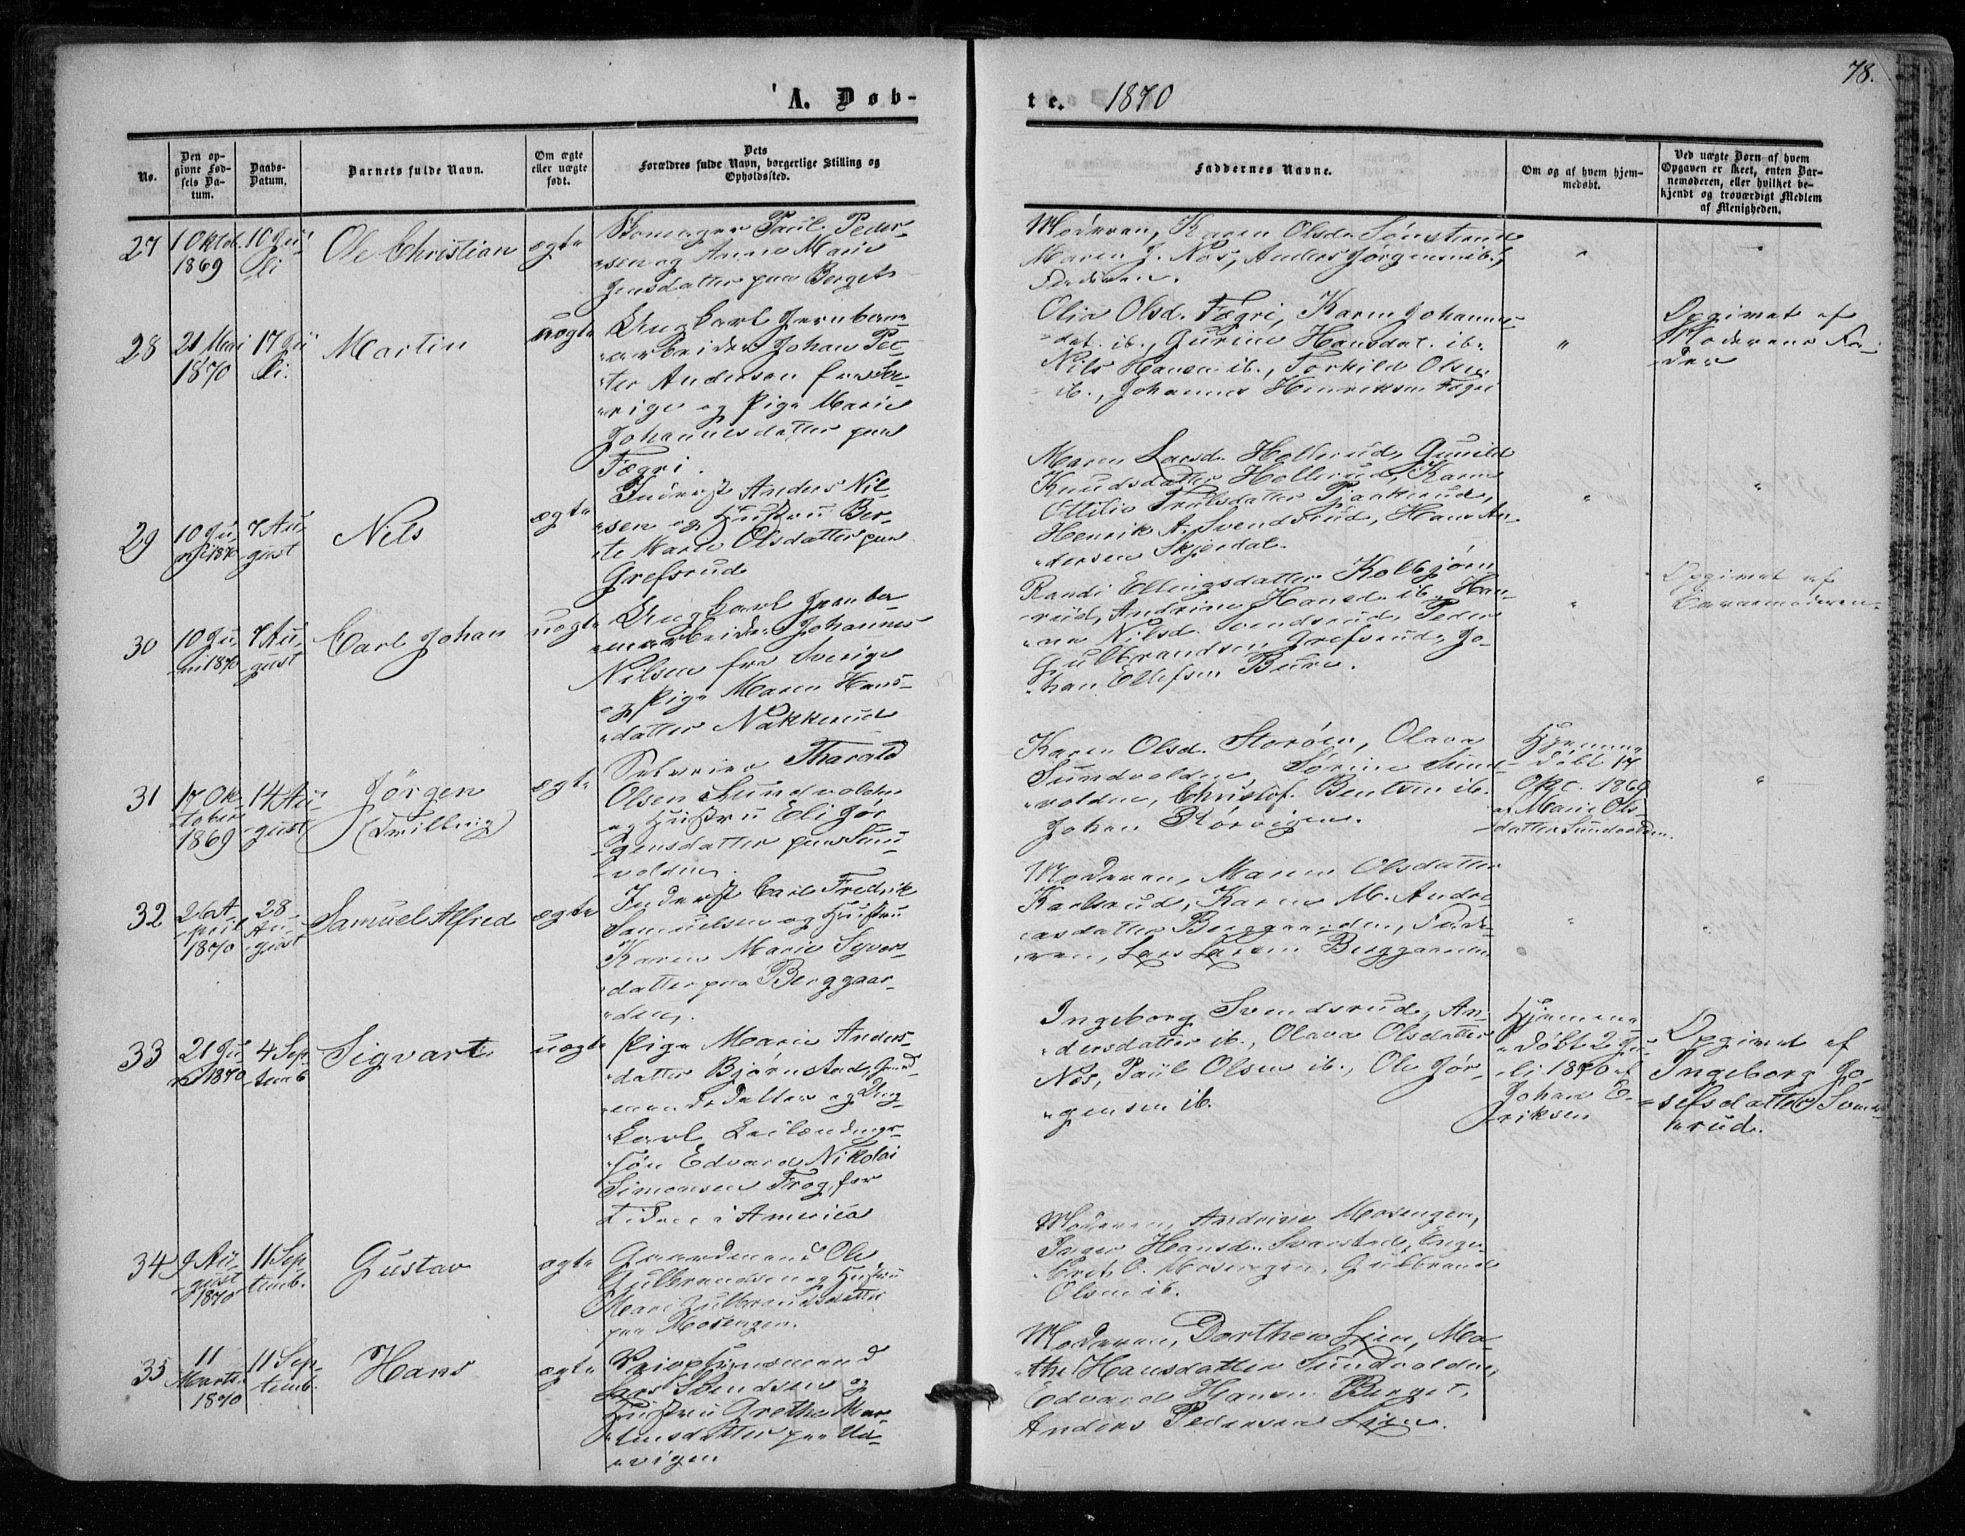 78.
A. Døb-
te. 1870
No.
Den op-
givne Fød-
sels Da-
tum.
Daabs-
Datum.
Barnets fulde Navn.
Om ægte
eller uægte
født.
Dets
Forældres fulde Navn, borgerlige Stilling og
Opholdssted.
Faddernes Navne.
Om og af hvem hjem-
medøbt.
Ved uægte Børn af hvem
Opgaven er skeet, enten Bar-
nemoderen, eller hvilket be-
kjendt og troværdigt Medlem
af Menigheden.
27
1 Oktob.
1869
10 Ju-
li
Ole Christian
ægte
Skomager Paul Peder-
sen og Anne Marie
Jensdatter paa Berget
Moderen, Karen Olsd.
Maren J. Næs, Anders Jørgensen ib.,
Faderen.
28
21 Mai
1870
17 Ju-
li.
Martin
uægte
Ungkarl Jernbane-
arbeider Johan Pet-
ter Anderson fra Sve-
rige og Pige Marie
Johannesdatter paa
Fægri.
Olia Olsd. Fægri, Karen Johannes-
dat. ib., Gurine Hansdat. ib.
Nils Hansen ib., Torkild Olsen
ib., Johannes Henriksen Fægri
"
Opgivet af
Moderens Fa-
der
29
10 Ju-
ni 1870
7 Au-
gust
Nils
ægte
Inderst Anders Nil-
sen og Hustru Ber-
te Marie Olsdatter paa
Grefsrud
Maren Larsd. Hollerud, Gunild
Knudsdatter Hollerud, Karen
Ottilie Trulsdatter
Henrik A. Svendsrud, Hans An-
dersen Skjørdal.
"
"
30
10 Ju-
ni 1870
7 Au-
gust
Carl Johan
uægte
Ungkarl Jernba-
nearbeider Johannes
Nilsen fra Sverige
og Pige Maren Hans-
datter Nakkerud
Randi Ellingsdatter Kolbjørn-
rud, Andrine Hansd. ib., Han-
na Nilsd. Svendsrud, Peder
Gulbrandsen Grefsrud, Jo-
han Ellefsen Bure.
"
Opgivet af
Barnemoderen
31
17 Ok-
tober
1869
14 Au-
gust
Jørgen
(Tvilling)
ægte
Selveier Tharald
Olsen Sundvolden
og Hustru Eli Jør-
gensdatter paa Sun-
volden.
Karen Olsd. Storøen, Olava
Sundvolden, Sørine Sund-
volden, Christof. Bentsen ib.
Johan Rørvigen.
Hjemme-
døbt 17
Okt. 1869
af Marie Ols-
datter Sundvolden.
"
32
26 A-
pril
1870
28
Au-
gust
Samuel Alfred
ægte
Inderst Carl Fredrik
Samuelsen og Hustru
Karen Marie Syvers-
datter paa Berggaar-
den.
Moderen, Maren Olsdatter
Karlsrud, Karen M. Andre-
asdatter Berggaarden, Fade-
ren, Lars Larsen Berggaarden
"
"
33
21 Ju-
ni 1870
4 Sep-
temb
Sigvart
uægte
Pige Marie Anders-
datter Bjørnstad, Gaard-
mandsdatter og Ung-
karl Leilændings-
søn Edvard Nikolai
Simonsen Frog, for
Tiden i America
Ingeborg Svendsrud, An-
dersdatter ib., Olava Olsdatter
Næs, Paul Olsen ib., Ole Jør-
gensen ib.
Hjemme-
døbt 2 Ju-
li 1870 af
Johan E-
riksen
Opgivet af
Ingeborg Jo-
sefsdatter Svends-
rud.
34
9 Au-
gust
1870
11 Sep-
temb.
Gustav
ægte
Gaardmand Ole
Gulbrandsen og Hustru
Mari Gulbrandsdatter
paa Mosengen.
Moderen, Andrine Mosengen,
Inger Hansd. Svarstad, Enge-
bret O. Mosengen, Gulbrand
Olsen ib.
35
11
Marts
1870
11 Sep-
temb.
Hans
ægte
Lars Svendsen og
Hustru Grethe Mar-
tinsdatter paa
vigen
Moderen, Dorthea Lien, Ma-
the Hansdatter Sundvolden,
Edvard Hansen Berget,
Anders Pedersen Lien.